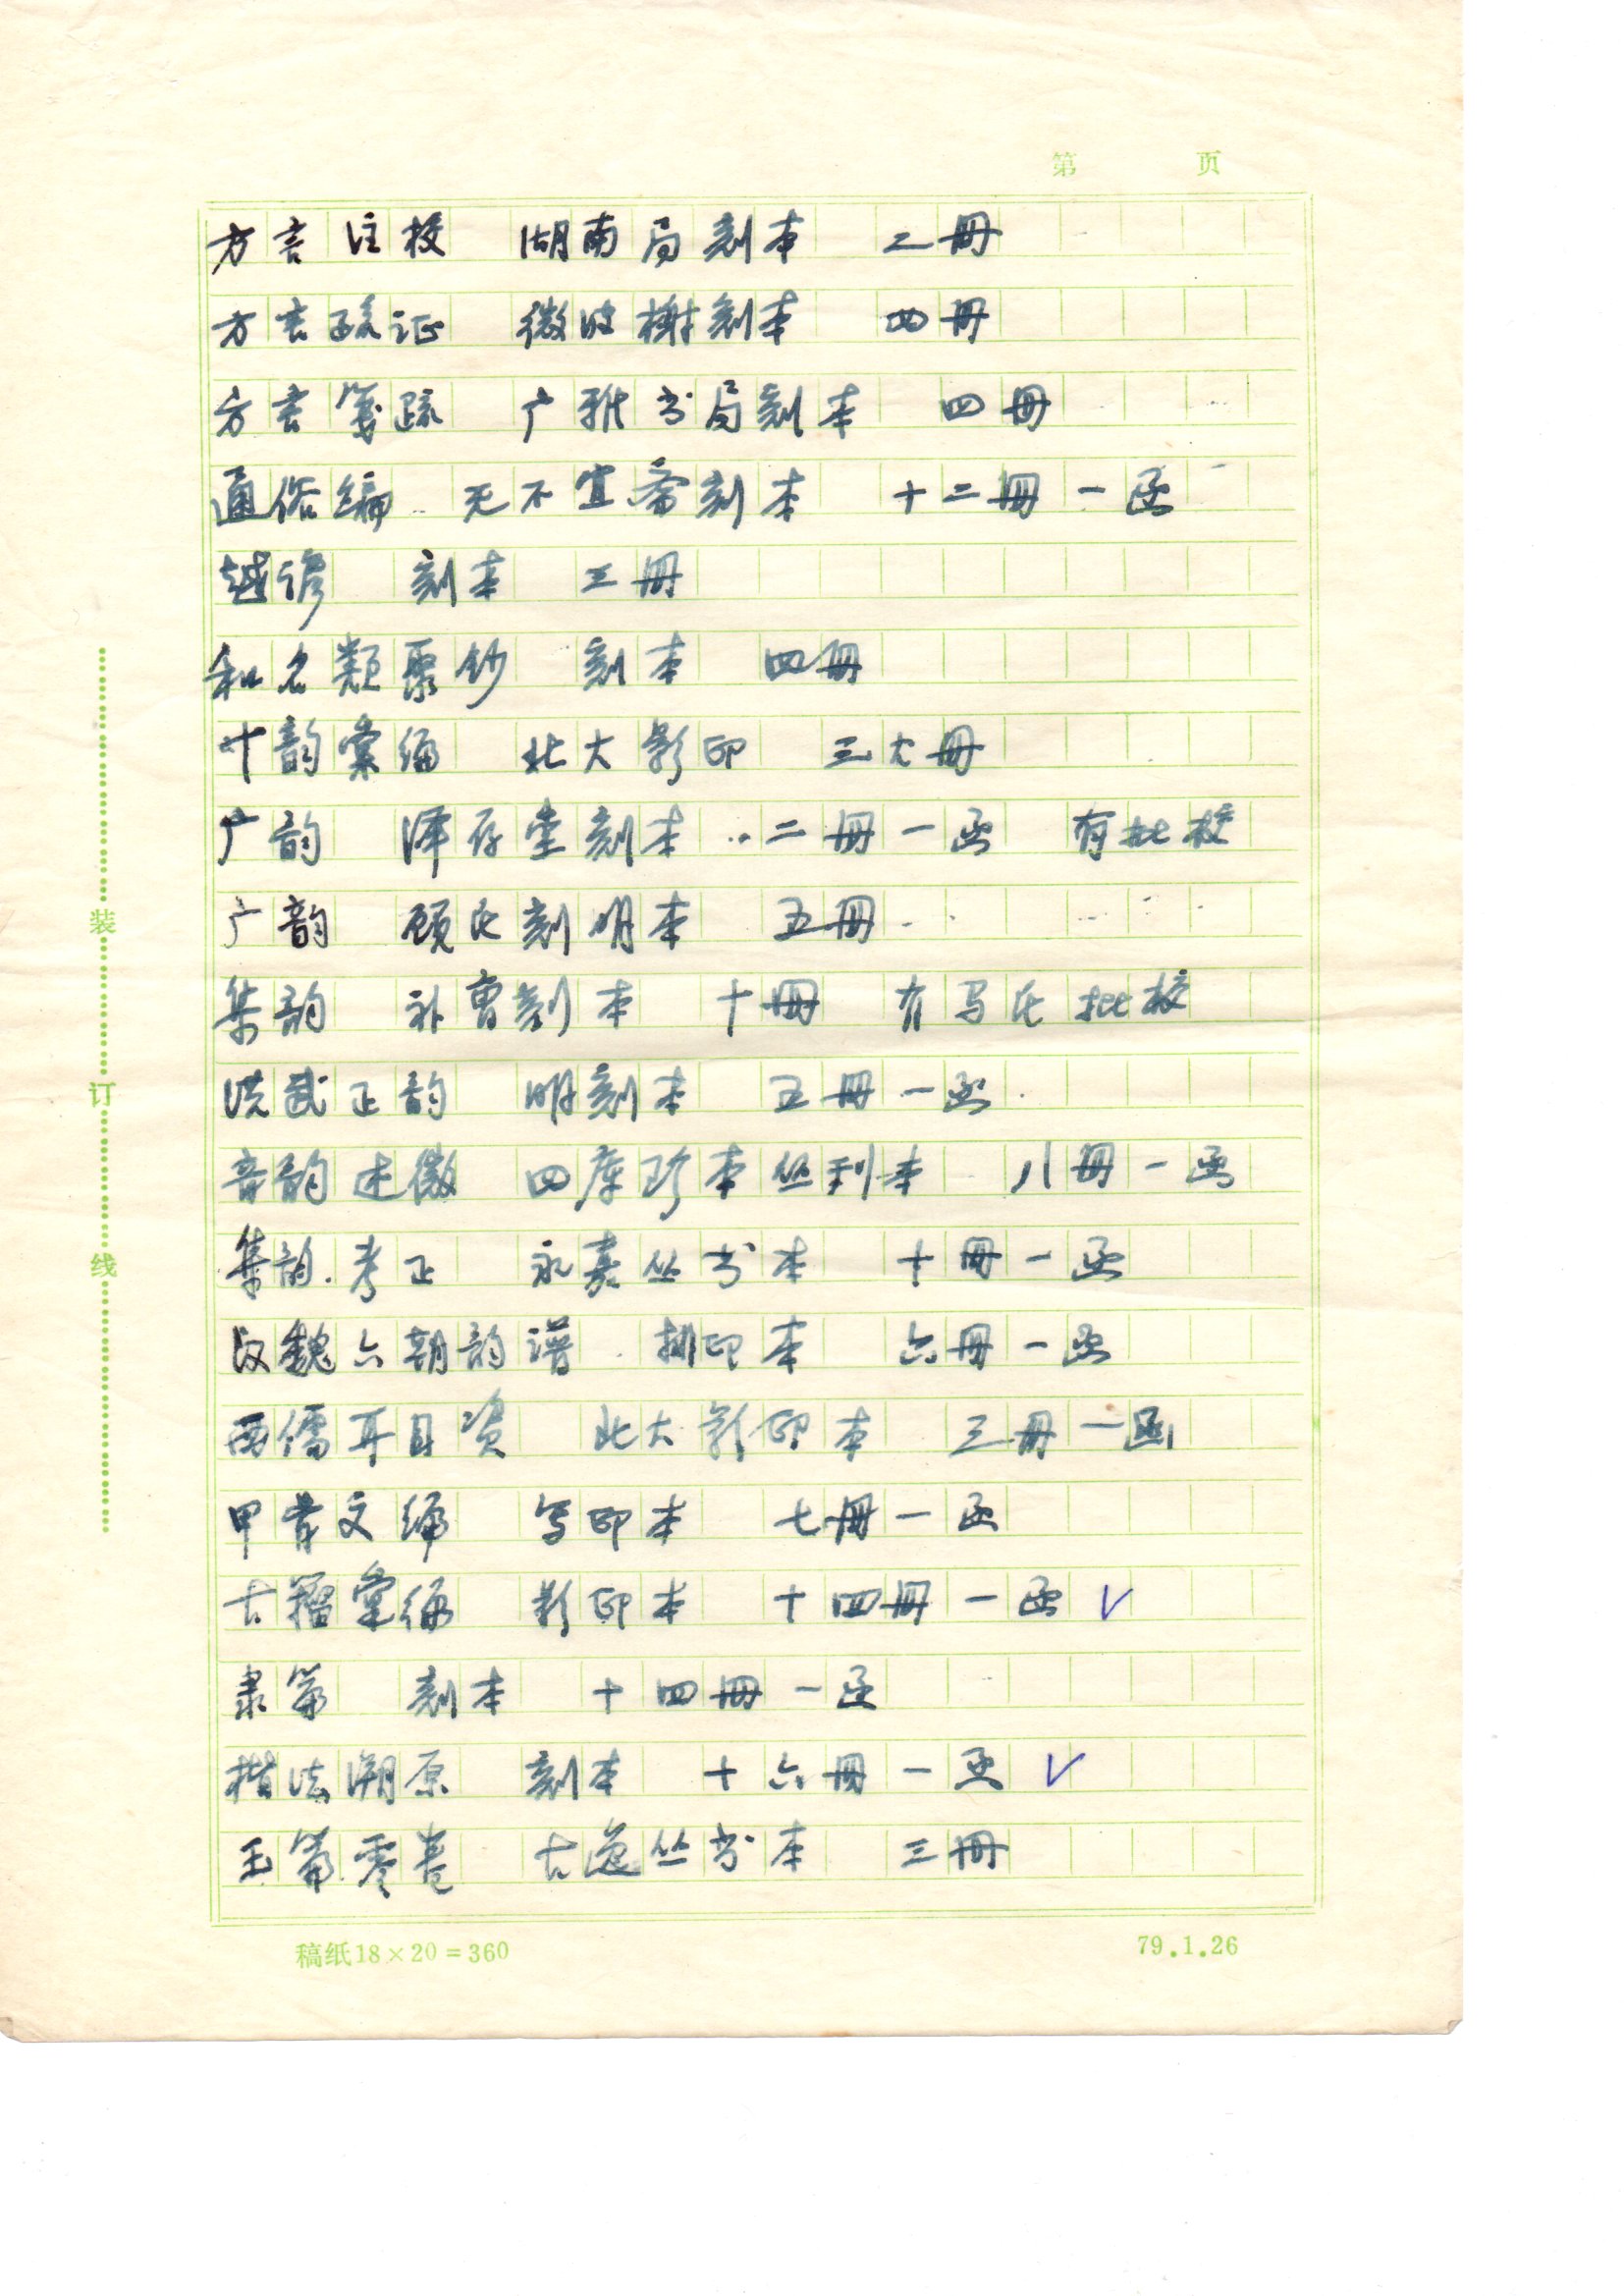 第 页
方言注校 湖南局刻本 二册
方言疏证 微波榭刻本 四册
方言笺疏 广雅书局刻本 四册
通俗编 无不宜斋刻本 十二册一函
越谚 刻本 三册
和名类聚钞 刻本 四册
十韵彙编 北大影印 三大册
广韵 泽存堂刻本 二册一函 有批校
广韵 顾氏刻明本 五册
集韵 补曹刻本 十册 有马氏批校
洪武正韵 明刻本 五册一函
音韵述微 四库珍本丛刊本 八册一函
集韵考正 永嘉丛书本 十册一函
汉魏六朝韵谱 排印本 六册一函
西儒耳目资 北大影印本 三册一函
甲骨文编 写印本 七册一函
古籀彙编 影印本 十四册一函 √
隶篇 刻本 十四册一函
楷法溯原 刻本 十六册一函 √
玉篇零卷 古逸丛书本 三册
装
订
线
稿纸18×20=360 79.1.26